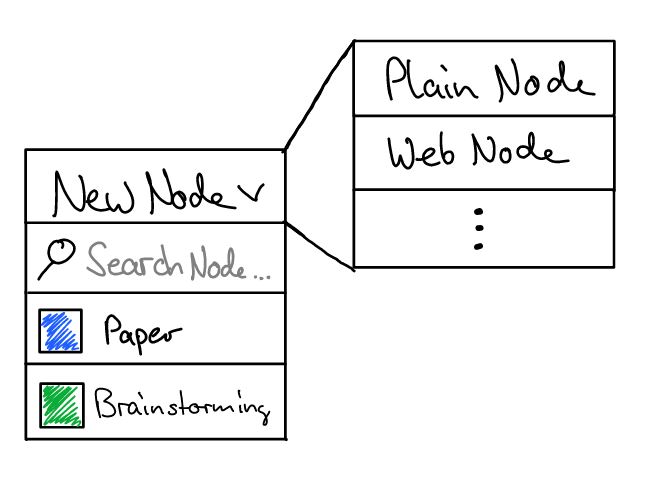 New Node
Search Node...
Paper
Brainstorming
Plain Node
Web Node